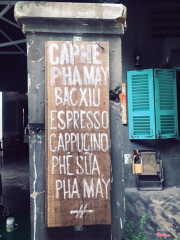 CAPHÊ
PHA MÁY
BẠC XỈU
ESPRESSO
CAPPUCINO
PHÊ SỮA
PHA MÁY